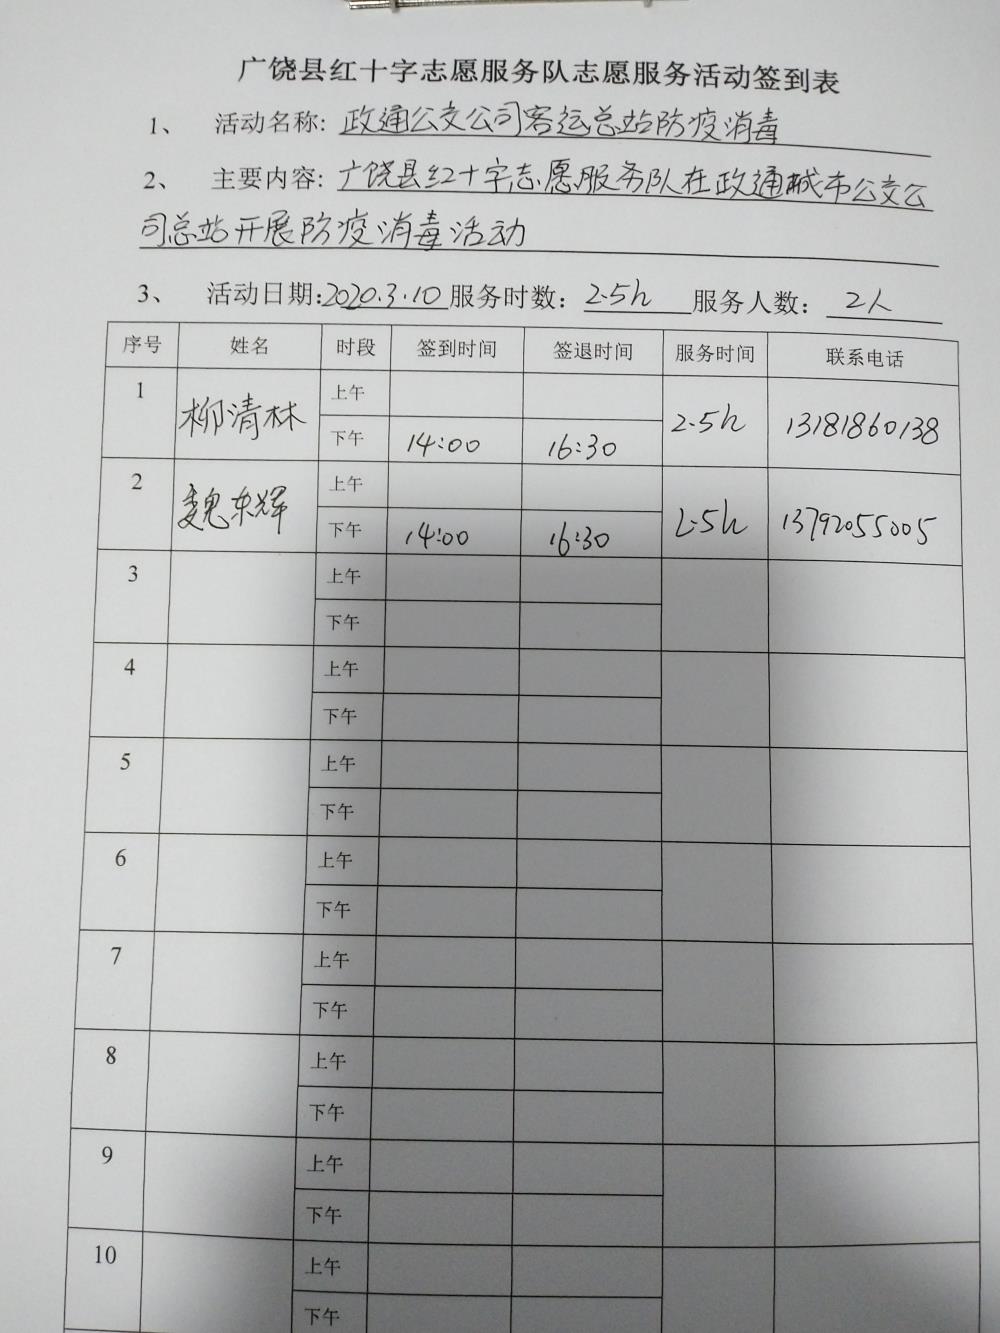 广饶县红十字志愿服务队志愿服务活动签到表
1、 活动名称: 政通公交公司客运总站防疫消毒
2、 主要内容: 广饶县红十字志愿服务队在政通城市公交公
司总站开展防疫消毒活动
3、 活动日期:2020.3.10 服务时数: 2.5h 服务人数: 2人
序号 姓名 时段 签到时间 签退时间 服务时间 联系电话
1 柳清林 上午
下午 14:00 16:30 2.5h 13181860138
2 魏东辉 上午
下午 14:00 16:30 2.5h 13792055005
3 上午
下午
4 上午
下午
5 上午
下午
6 上午
下午
7 上午
下午
8 上午
下午
9 上午
下午
10 上午
下午